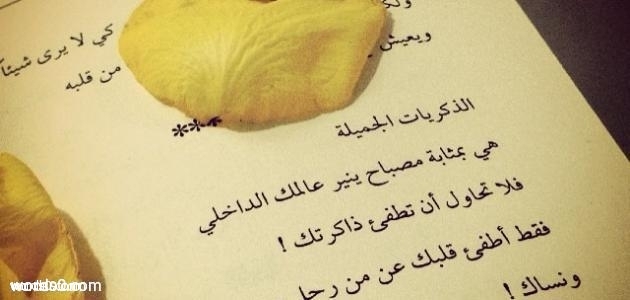 ولكن
كي لا يرى شيئاً
ويعيش
من قلبه
***
الذكريات الجميلة
هي بمثابة مصباح ينير عالمك الداخلي
فلا تحاول أن تطفئ ذاكرتك !
فقط أطفئ قلبك عن من رحل
ونساك !